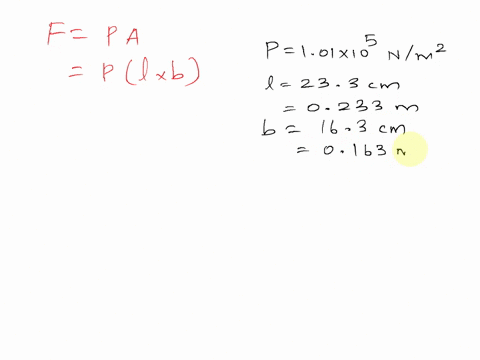 F = PA
= P(l×b)
P = 1.01×10⁵ N/m²
l = 23.3 cm
= 0.233 m
b = 16.3 cm
= 0.163